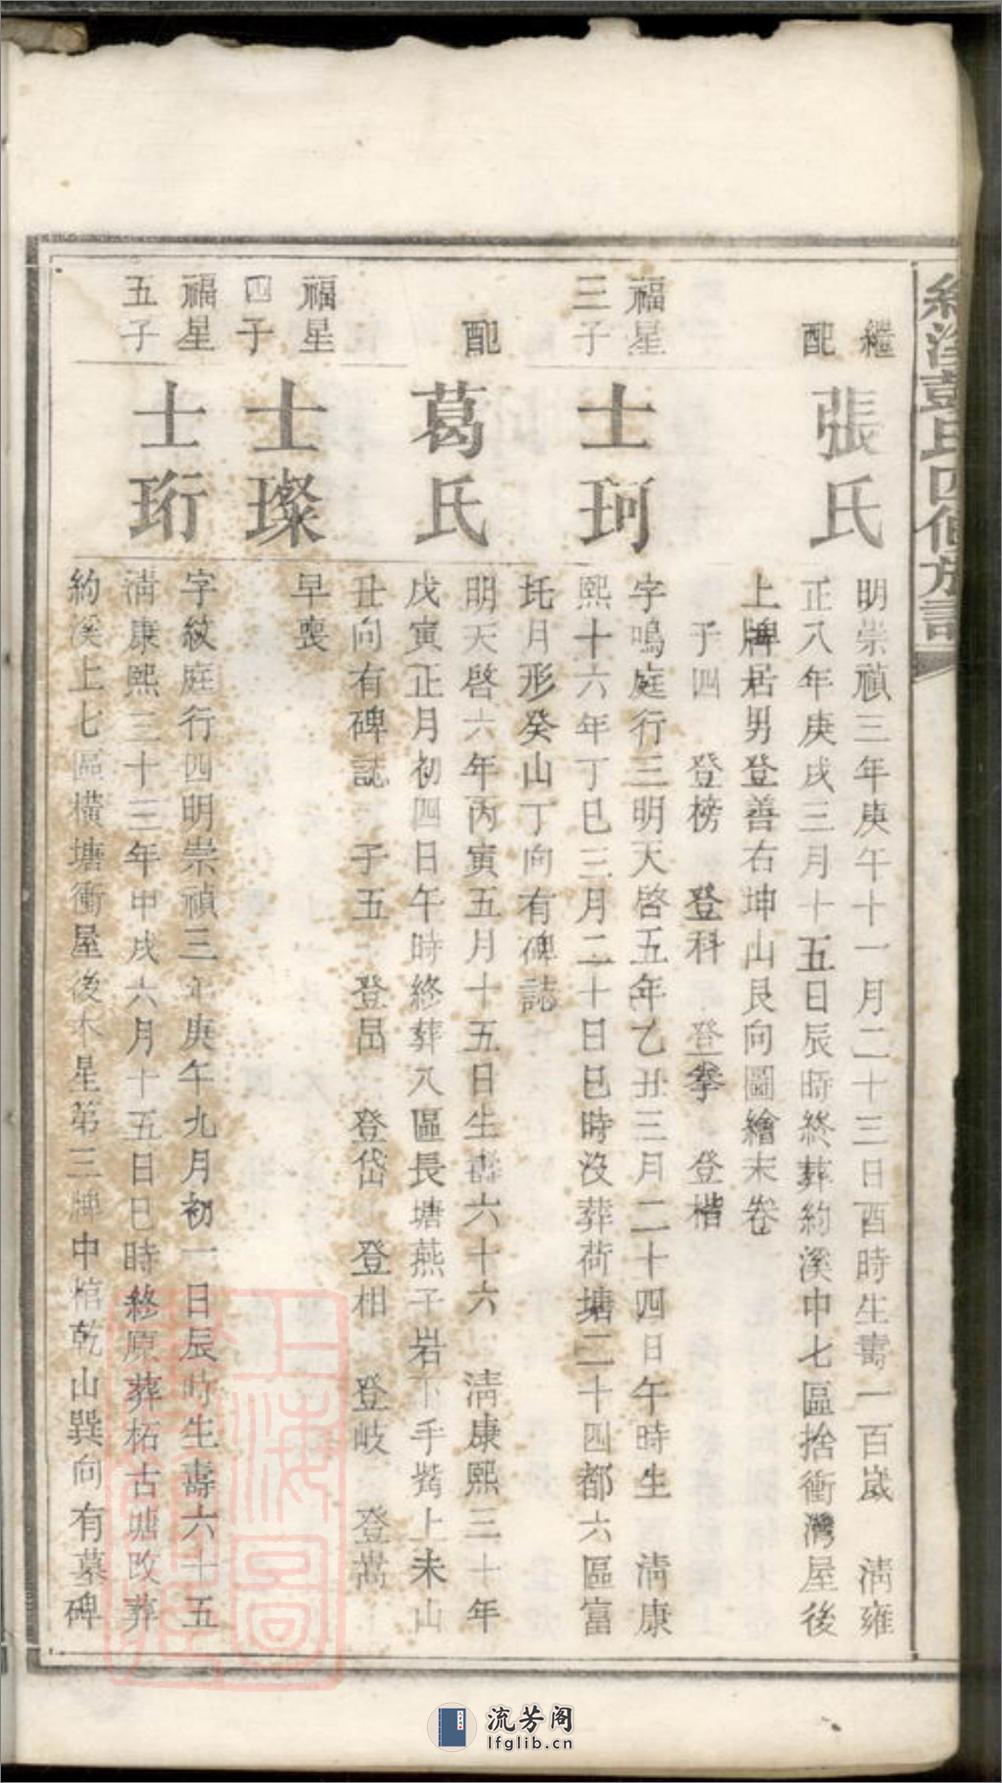 約溪彭氏四修族譜
繼
配
張氏
明崇禎三年庚午十一月二十三日酉時生壽一百歲　清雍
正八年庚戌三月十五日辰時終葬約溪中七區捨衝灣屋後
上牌居男登善右坤山艮向圖繪末卷
子四　登榜　登科　登拳　登楷
福星
三子
士珂
字鳴庭行三明天啓五年乙丑三月二十四日午時生　清康
熙十六年丁巳三月二十日巳時沒葬荷塘二十四都六區富
圫月形癸山丁向有碑誌
配
葛氏
明天啓六年丙寅五月十五日生壽六十六　清康熙三十年
戊寅正月初四日午時終葬八區長塘燕子岩下手觜上未山
丑向有碑誌　子五　登邑　登岱　登相　登岐　登嵩
福星
四子
士璨
早喪
福星
五子
士珩
字紋庭行四明崇禎三年庚午九月初一日辰時生壽六十五
清康熙三十三年甲戌六月十五日巳時終原葬柘古塘改葬
約溪上七區橫塘衝屋後木星第三牌中棺乾山巽向有墓碑
上海圖
流芳阁
lfglib.cn